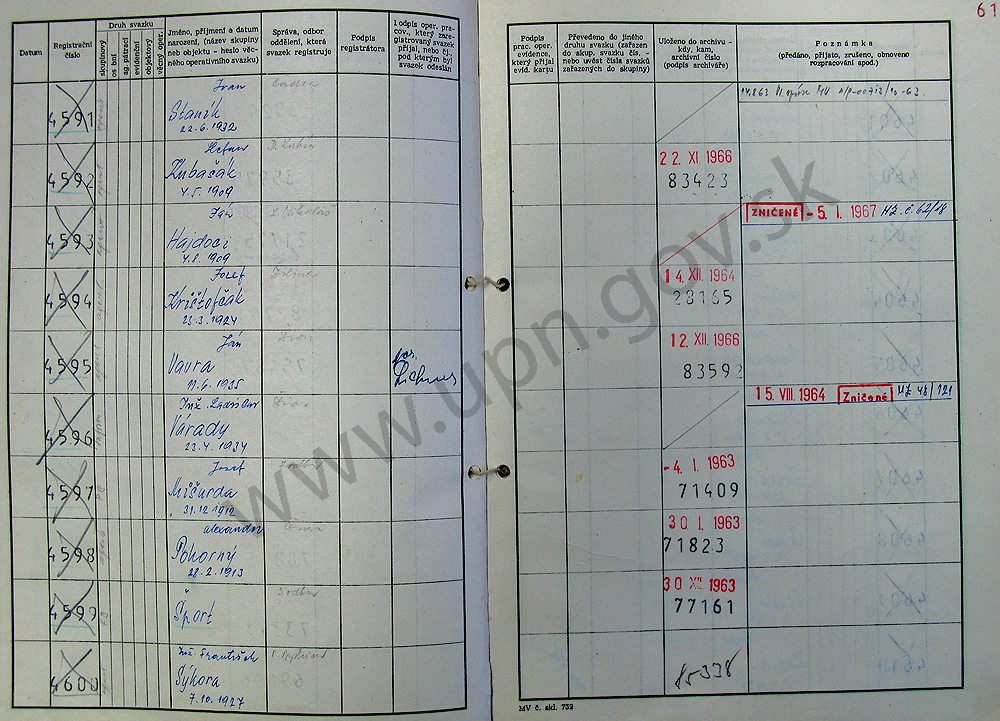 61
Datum
Registrační číslo
Druh svazku
skupinový
os bní
ag.pátrací
evidenční
objektový
věcný oper.
Jméno, příjmení a datum narození, (název skupiny neb objektu - heslo věcného operativního svazku)
Správa, odbor oddělení, která svazek registruje
Podpis registrátora
Podpis oper. pracov., který zaregistrovaný svazek přijal, nebo čj. pod kterým byl svazek odeslán
Podpis prac. oper. evidence, který přijal evid. kartu
Převedeno do jiného druhu svazku (zařazen do skup. svazku čís. - nebo uvést čísla svazků zařazených do skupiny)
Uloženo do archivu - kdy, kam, archivní číslo (podpis archiváře)
Poznámka
(předáno, přijato, zrušeno, obnoveno rozpracování apod.)
4591
Ivan
Staník
22.6.1932
4592
Štefan
Kubačák
4.5.1909
D. Kubín
22. XI. 1966
83423
4593
Ján
Hajdoci
4.8.1909
L. Mikuláš
ZNIČENÉ - 5. I. 1967
4594
Jozef
Krištofčák
23.3.1924
Žilina
14. XII. 1964
28165
4595
Ján
Vavra
11.6.1935
12. XII. 1966
83592
4596
Inž. Ladislav
Várady
23.4.1934
15. VIII. 1964 Zničené HZ 48/121
4597
Jozef
Mišurda
31.12.1912
-4. I. 1963
71409
4598
Alexander
Pohorný
28.2.1913
30. I. 1963
71823
4599
Šport
30 XII 1963
77161
4600
Inž. František
Sýkora
7.10.1927
85338
MV č. skl. 732
www.upn.gov.sk